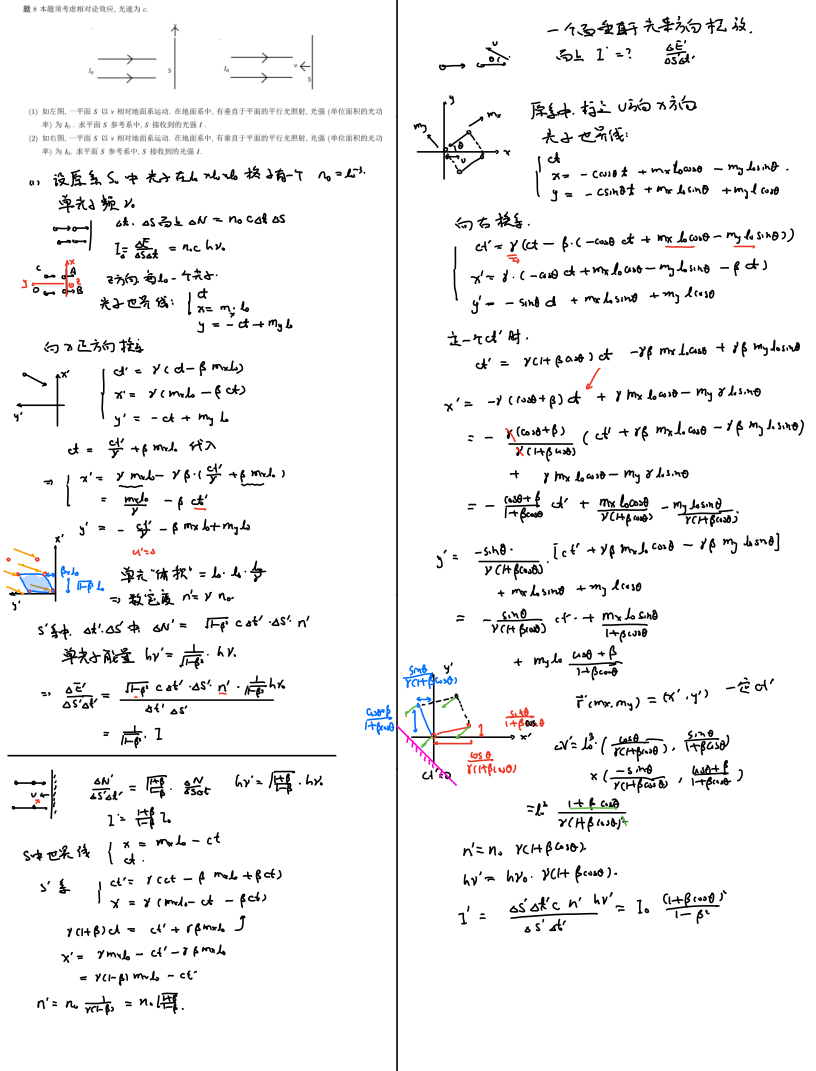 题 8 本题须考虑相对论效应, 光速为 c.
I₀ S
I₀ v S
(1) 如左图, 一平面 S 以 v 相对地面系运动. 在地面系中, 有垂直于平面的平行光照射, 光强 (单位面积的光功
率) 为 I₀ . 求平面 S 参考系中, S 接收到的光强 I .
(2) 如右图, 一平面 S 以 v 相对地面系运动. 在地面系中, 有垂直于平面的平行光照射, 光强 (单位面积的光功
率) 为 I₀. 求平面 S 参考系中, S 接收到的光强 I.
(1) 设原系 S₀ 中 光子在 l₀×l₀×l₀ 换子有一个 n₀ = l₀⁻³.
单光子频 ν₀
Δt. ΔS 面上 ΔN = n₀ c Δt ΔS
I = ΔE/ΔSΔt = n₀c hν₀
z方向 每l₀ 一个光子.
光子世界线: { ct
x = mₓ l₀
y = -ct + m_y l₀
向 x 正方向 换系
ct' = γ(ct - β mₓl₀)
x' = γ(mₓl₀ - βct)
y' = -ct + m_y l₀
ct = ct'/γ + β mₓl₀ 代入
⇒ { x' = γ mₓl₀ - γβ·(ct'/γ + β mₓl₀)
= mₓl₀/γ - β ct'
y' = - ct'/γ - β mₓl₀ + m_y l₀
ct'=0
单元“体积” = l₀·l₀·l₀/γ
⇒ 数密度 n' = γ n₀
S'系中. Δt'.ΔS' 中 ΔN' = √(1-β²) cΔt'·ΔS'·n'
单光子能量 hν' = 1/√(1-β²)·hν₀
⇒ ΔE'/ΔS'Δt' = √(1-β²) cΔt'·ΔS'·n'·1/√(1-β²) hν₀ / Δt'ΔS'
= 1/√(1-β²)·I
ΔN'/ΔS'Δt' = √((1+β)/(1-β))·ΔN/ΔSΔt hν' = √((1+β)/(1-β))·hν₀
I' = (1+β)/(1-β) I₀
S中世界线 { x = mₓl₀ - ct
ct.
S'系 { ct' = γ(ct - β mₓl₀ + βct)
x' = γ(mₓl₀ - ct - βct)
γ(1+β)ct = ct' + γβmₓl₀
x' = γmₓl₀ - ct' - γβmₓl₀
= γ(1-β)mₓl₀ - ct'
n' = n₀ 1/γ(1-β) = n₀√((1+β)/(1-β)).
一个面垂直于光来方向 摆放.
面上 I' = ? ΔE'/ΔS'Δt'
原系中. 标上 v 方向 x 方向
光子世界线:
{ ct
x = -cosθ t + mₓl₀cosθ - m_yl₀sinθ.
y = -csinθt + mₓl₀sinθ + m_yl cosθ
向右换系.
ct' = γ(ct - β·(-cosθ ct + mₓl₀cosθ - m_yl₀sinθ))
x' = γ·(-cosθ ct + mₓl₀cosθ - m_yl₀sinθ - βct)
y' = -sinθ ct + mₓl₀sinθ + m_yl cosθ
立一个ct'时.
ct' = γ(1+βcosθ)ct - γβ mₓl₀cosθ + γβ m_yl₀sinθ
x' = -γ(cosθ+β)ct + γmₓl₀cosθ - m_yγl₀sinθ
= - γ(cosθ+β)/γ(1+βcosθ) (ct' + γβ mₓl₀cosθ - γβ m_yl₀sinθ)
+ γmₓl₀cosθ - m_yγl₀sinθ
= - (cosθ+β)/(1+βcosθ) ct' + mₓl₀cosθ/γ(1+βcosθ) - m_yl₀sinθ/γ(1+βcosθ).
y' = -sinθ·/γ(1+βcosθ)·[ct' + γβmₓl₀cosθ - γβ m_yl₀sinθ]
+ mₓl₀sinθ + m_yl cosθ
= - sinθ/γ(1+βcosθ) ct' + mₓl₀sinθ/(1+βcosθ)
+ m_yl₀ (cosθ+β)/(1+βcosθ)
r'(mₓ,m_y) = (x',y') 一定ct'
ΔV' = l₀³·(cosθ/γ(1+βcosθ), sinθ/(1+βcosθ))
×(-sinθ/γ(1+βcosθ), (cosθ+β)/(1+βcosθ))
= l₀³ (1+βcosθ)/γ(1+βcosθ)²
n' = n₀ γ(1+βcosθ).
hν' = hν₀·γ(1+βcosθ).
I' = ΔS'Δt'c n' hν'/ΔS'Δt' = I₀ (1+βcosθ)²/(1-β²)